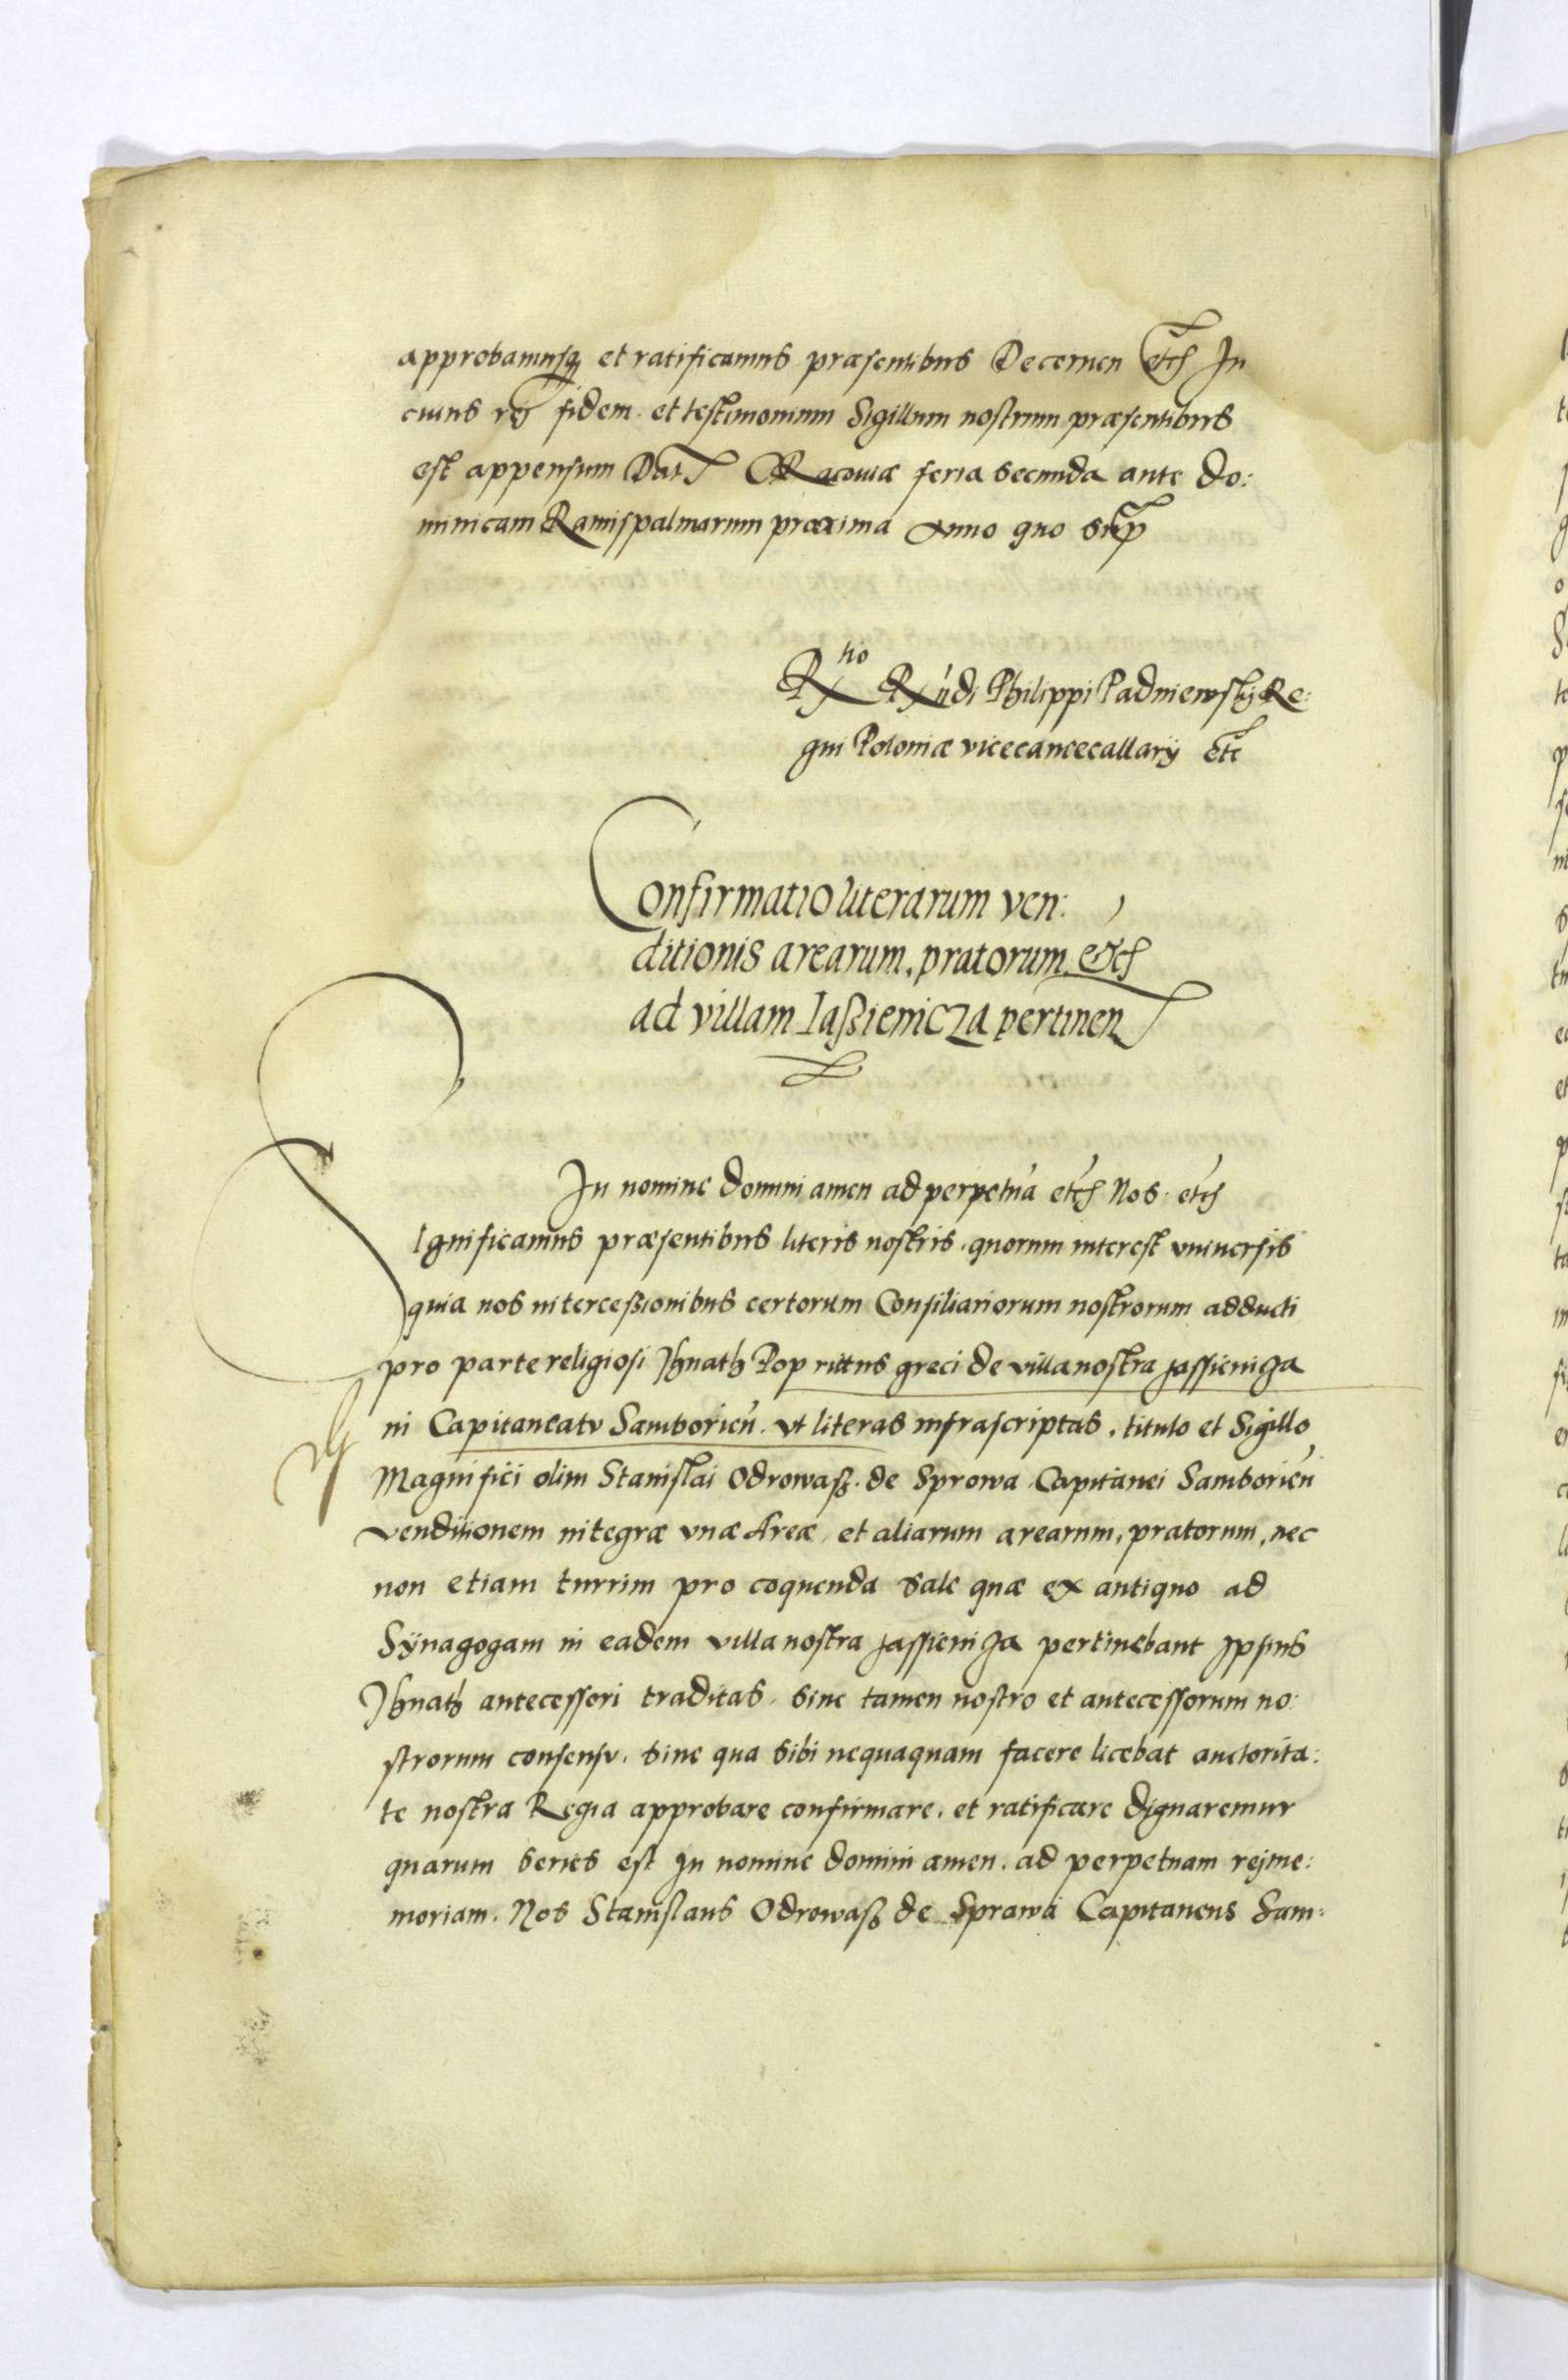 approbamusq; et ratificamus præsentibus Decernen etc̃ In
cuius rei fidem et testimonium Sigillum nostrum præsentibus
est appensum Dat Racoviæ feria secunda ante Do:
minicam Ramispalmarum proxima Anno quo sup̃
Rtio Rx̃ndi Philippi Padniewsky Re:
gni Poloniæ vicecancecallarÿ Etc̃
Confirmatio literarum ven:
ditionis arearum, pratorum etc̃
ad villam Iaßienicza pertinen
In nomine Domini amen ad perpetuã etc̃ Nos etc̃
Significamus præsentibus literis nostris, quorum interest vniuersis
quia nos interceßionibus certorum Consiliariorum nostrorum adducti
pro parte religiosi Ihnath Pop rittus greci de villa nostra Jassienicza
in Capitaneatv Samborień. vt literas infrascriptas, titulo et Sigillo
Magnifici olim Stanislai Odrowaß de Sprowa Capitanei Samborień
venditionem integræ vnæ Areæ, et aliarum arearum, pratorum, nec
non etiam turrim pro coquenda sale quæ ex antiquo ad
Sÿnagogam in eadem villa nostra Jassienicza pertinebant Ipsius
Ihnath antecessori traditas, sine tamen nostro et antecessorum no:
strorum consensv, sine qua sibi nequaquam facere licebat auctorita:
te nostra Regia approbare confirmare, et ratificare dignaremur
quarum series est In nomine domini amen. ad perpetuam rei me:
moriam. Nos Stanislaus Odrowaß de Sprawa Capitaneus Sam: